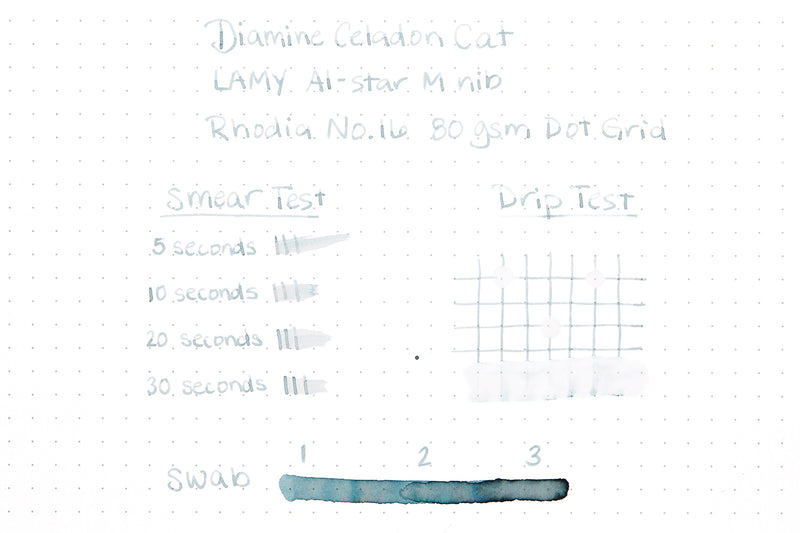 Diamine Celadon Cat
LAMY Al-star M nib
Rhodia No.16 80 gsm Dot Grid
Smear Test
5 seconds
10 seconds
20 seconds
30 seconds
Drip Test
1 2 3
Swab